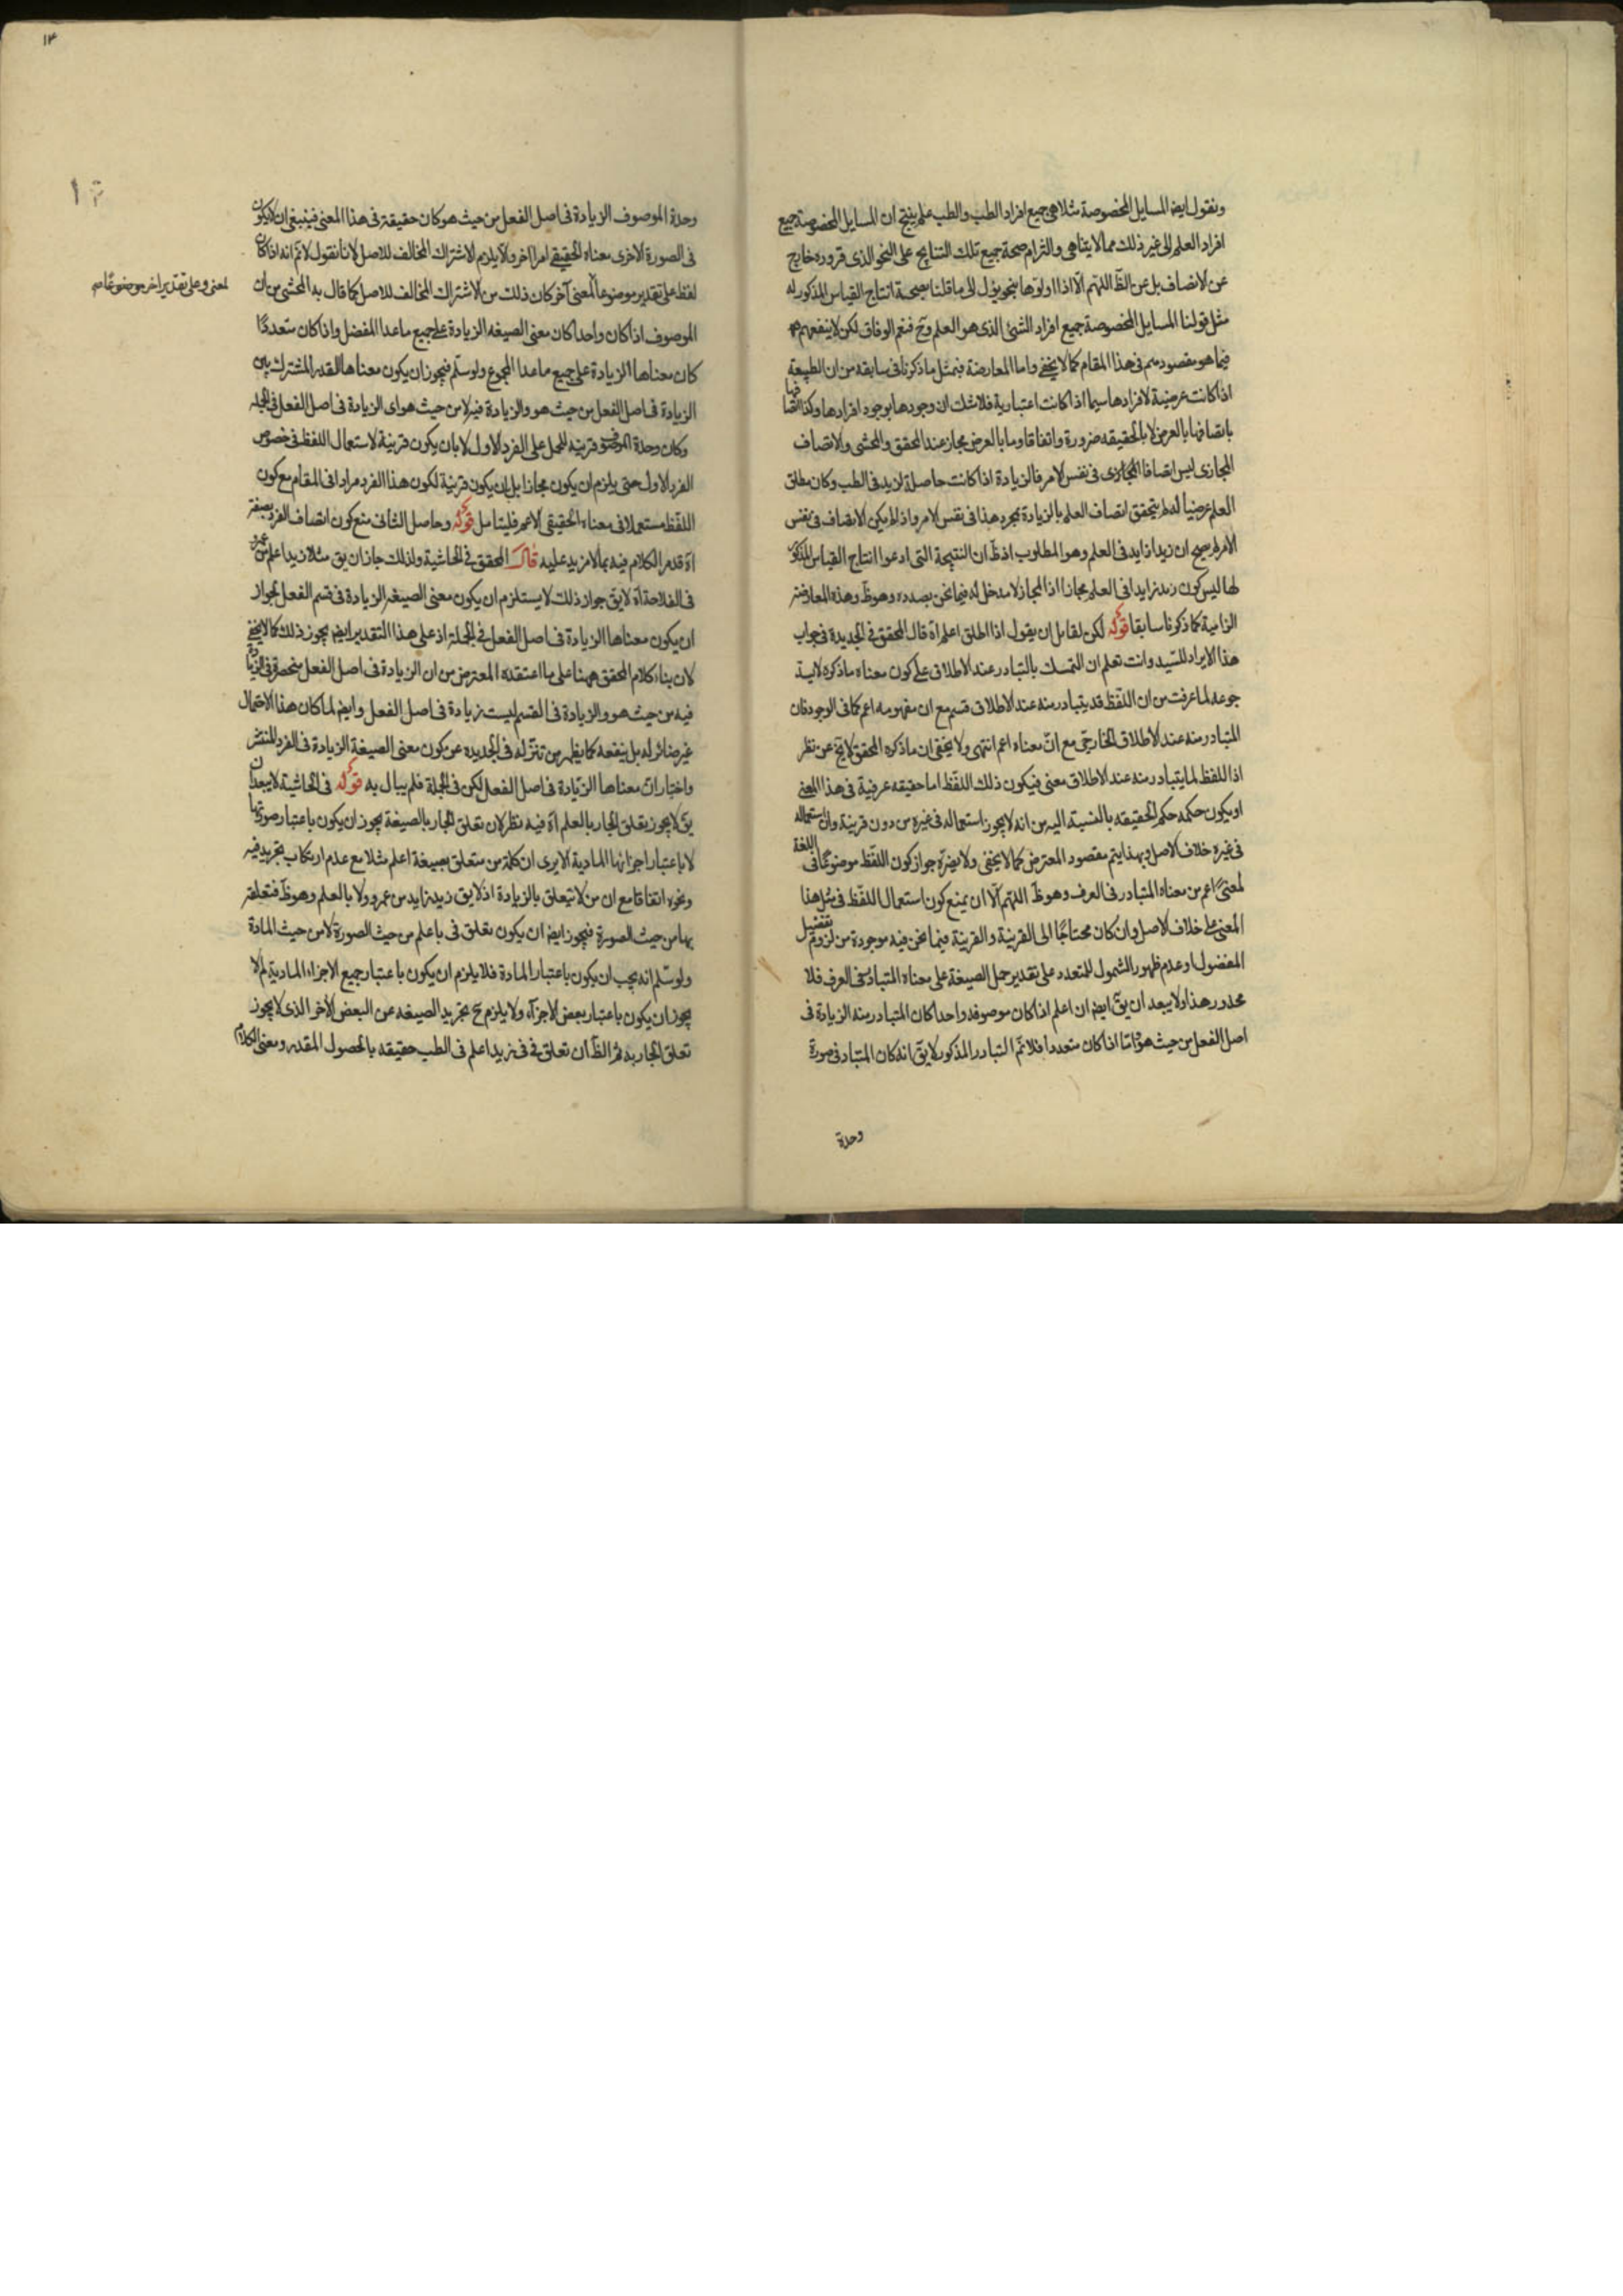 ونقول ايض المسايل المخصوصة مثلا هى جميع افراد الطب والطب علم ينتج ان المسايل المخصوصة جميع
افراد العلم الى غير ذلك مما لا يتناهى والتزام صحة جميع تلك النتايج على النحو الذى قرروه خارج
عن الانصاف بل عن الظ اللهم الا اذا اولوها بنحو يؤل الى ما قلنا صحة انتاج القياس المذكور له
مثل قولنا المسايل المخصوصة جميع افراد الشئ الذى هو العلم وح فنعم الوفاق لكن لا ينفعهم
فيما هو مقصودهم فى هذا المقام كما لا يخفى واما المعارضة فبمثل ما ذكرنا فى سابقه من ان الطبيعة
اذا كانت عرضية لافرادها سيما اذا كانت اعتبارية فلا شك ان وجودها بوجود افرادها وكذا اتصا
فها
باتصافها بالعرض لا بالحقيقه ضرورة واتفاقا وما بالعرض مجاز عند المحقق والمحشى والاتصاف
المجازى ليس اتصافا فى نفس الامر فالزيادة اذا كانت حاصلة لزيد فى الطب وكان مطلق
العلم عرضيا له لم يتحقق اتصاف العلم بالزيادة بمجرد هذا فى نفس الامر واذا لم يكن الاتصاف فى نفس
الامر لم يصح ان زيدا زايد فى العلم وهو المطلوب اذ ظ ان النتيجة التى ادعوا انتاج القياس المذكور
لها ليس كون زيد زايدا فى العلم مجازا اذ المجاز لا مدخل له فيما نحن بصدده وهو ظ وهذه المعارضة
الزامية كما ذكرنا سابقا قوله لكن لقايل ان يقول اذا اطلق اعلم اه قال المحقق فى الجديدة فى جواب
هذا الايراد للسيد وانت تعلم ان التمسك بالتبادر عند الاطلاق على كون معناه ما ذكره لا يتـ
جوعه لما عرفت من ان اللفظ قد يتبادر منه عند الاطلاق قسم مع ان مفهومه اعم كما فى الوجود فان
المتبادر منه عند الاطلاق الخارجى مع ان معناه اعم انتهى ولا يخفى ان ما ذكره المحقق لا يخ عن نظر
اذ اللفظ لما يتبادر منه عند الاطلاق معنى فيكون ذلك اللفظ اما حقيقه عرفية فى هذا المعنى
او يكون حكمه حكم الحقيقه بالنسبة اليه من انه لا يجوز استعماله فى غيره من دون قرينة وان استعماله
فى غيره خلاف الاصل وبهذا يتم مقصود المعترض كما لا يخفى ولا يضره جواز كون اللفظ موضوعا فى
اللغة
لمعنى اعم من معناه المتبادر فى العرف وهو ظ اللهم الا ان يمنع كون استعمال اللفظ فى مثل هذا
المعنى على خلاف الاصل وان كان محتاجا الى القرينة والقرينة فيما نحن فيه موجودة من لزوم تفضيل
المفضول او عدم ظهور الشمول للمتعدد على تقدير حمل الصيغة على معناه المتبادر فى العرف فلا
محذور هذا ولا يبعد ان يق ايض ان اعلم اذا كان موصوفه واحدا كان المتبادر منه الزيادة فى
اصل الفعل من حيث هو واما اذا كان متعددا فلا نم التبادر المذكور لا يق انه كان المتبادر فى صورة
وحدة
وحدة الموصوف الزيادة فى اصل الفعل من حيث هو كان حقيقة فى هذا المعنى فينبغى ان لا يكون
فى الصورة الاخرى معناه الحقيقى امرا اخر والا يلزم الاشتراك المخالف للاصل لانا نقول لا نم انه اذا كان
لفظ على تقدير موضوعا لمعنى آخر كان ذلك من الاشتراك المخالف للاصل كما قال به المحشى من ان
لمعنى وعلى تقدير اخر موضوعا
الموصوف اذا كان واحدا كان معنى الصيغه الزيادة على جميع ما عدا المفضل واذا كان متعددا
كان معناها الزيادة على جميع ما عدا المجموع ولو سلم فيجوز ان يكون معناها القدر المشترك بين
الزيادة فى اصل الفعل من حيث هو والزيادة فيه لا من حيث هو اى الزيادة فى اصل الفعل فى الجملة
وكان وحدة الموصوف قرينه للحمل على الفرد الاول لا بان يكون قرينة لاستعمال اللفظ فى خصوص
الفرد الاول حتى يلزم ان يكون مجازا بل ان يكون قرينة لكون هذا الفرد مرادا فى المقام مع كون
اللفظ مستعملا فى معناه الحقيقى الاعم فليتامل قوله وحاصل الثانى منع كون اتصاف الفرد بصفة
اه قد مر الكلام فيه بما لا مزيد عليه قال المحقق فى الحاشية ولذلك جاز ان يق مثلا زيد اعلم من عمرو
فى الفلاحة اه لا يق جواز ذلك لا يستلزم ان يكون معنى الصيغه الزيادة فى قسم الفعل لجواز
ان يكون معناها الزيادة فى اصل الفعل فى الجملة اذ على هذا التقدير ايض يجوز ذلك كما لا يخفى
لان بناء كلام المحقق ههنا على ما اعتقده المعترض من ان الزيادة فى اصل الفعل منحصر فى الزيادة
فيه من حيث هو والزيادة فى القسم ليست زيادة فى اصل الفعل وايض لما كان هذا الاحتمال
غير ضائر له بل ينفعه كما يظهر من تنزله فى الجديده عن كون معنى الصيغة الزيادة فى الفرد المنتشر
واختيار ان معناها الزيادة فى اصل الفعل لكن فى الجملة فلم يبال به قوله فى الحاشية لا يبعد ان
يق لا يجوز تعلق الجار بالعلم اه فيه نظر لان تعلق الجار بالصيغة يجوز ان يكون باعتبار صورتها
لا باعتبار اجزائها المادية الا يرى ان كلمة من متعلق بصيغة اعلم مثلا مع عدم ارتكاب تجريد فيه
ونحوه اتفاقا مع ان من لا يتعلق بالزيادة اذ لا يق زيد زايد من عمرو ولا بالعلم وهو ظ فتعلقه
بها من حيث الصورة فيجوز ايض ان يكون تعلق فى باعلم من حيث الصورة لا من حيث المادة
ولو سلم انه يجب ان يكون باعتبار المادة فلا يلزم ان يكون باعتبار جميع الاجزاء المادية لم لا
يجوز ان يكون باعتبار بعض الاجزاء ولا يلزم ح تجريد الصيغه عن البعض الاخر الذى لا يجوز
تعلق الجار به ثم الظ ان تعلق فى فى زيد اعلم فى الطب حقيقه بالحصول المقدر ومعنى الكلام